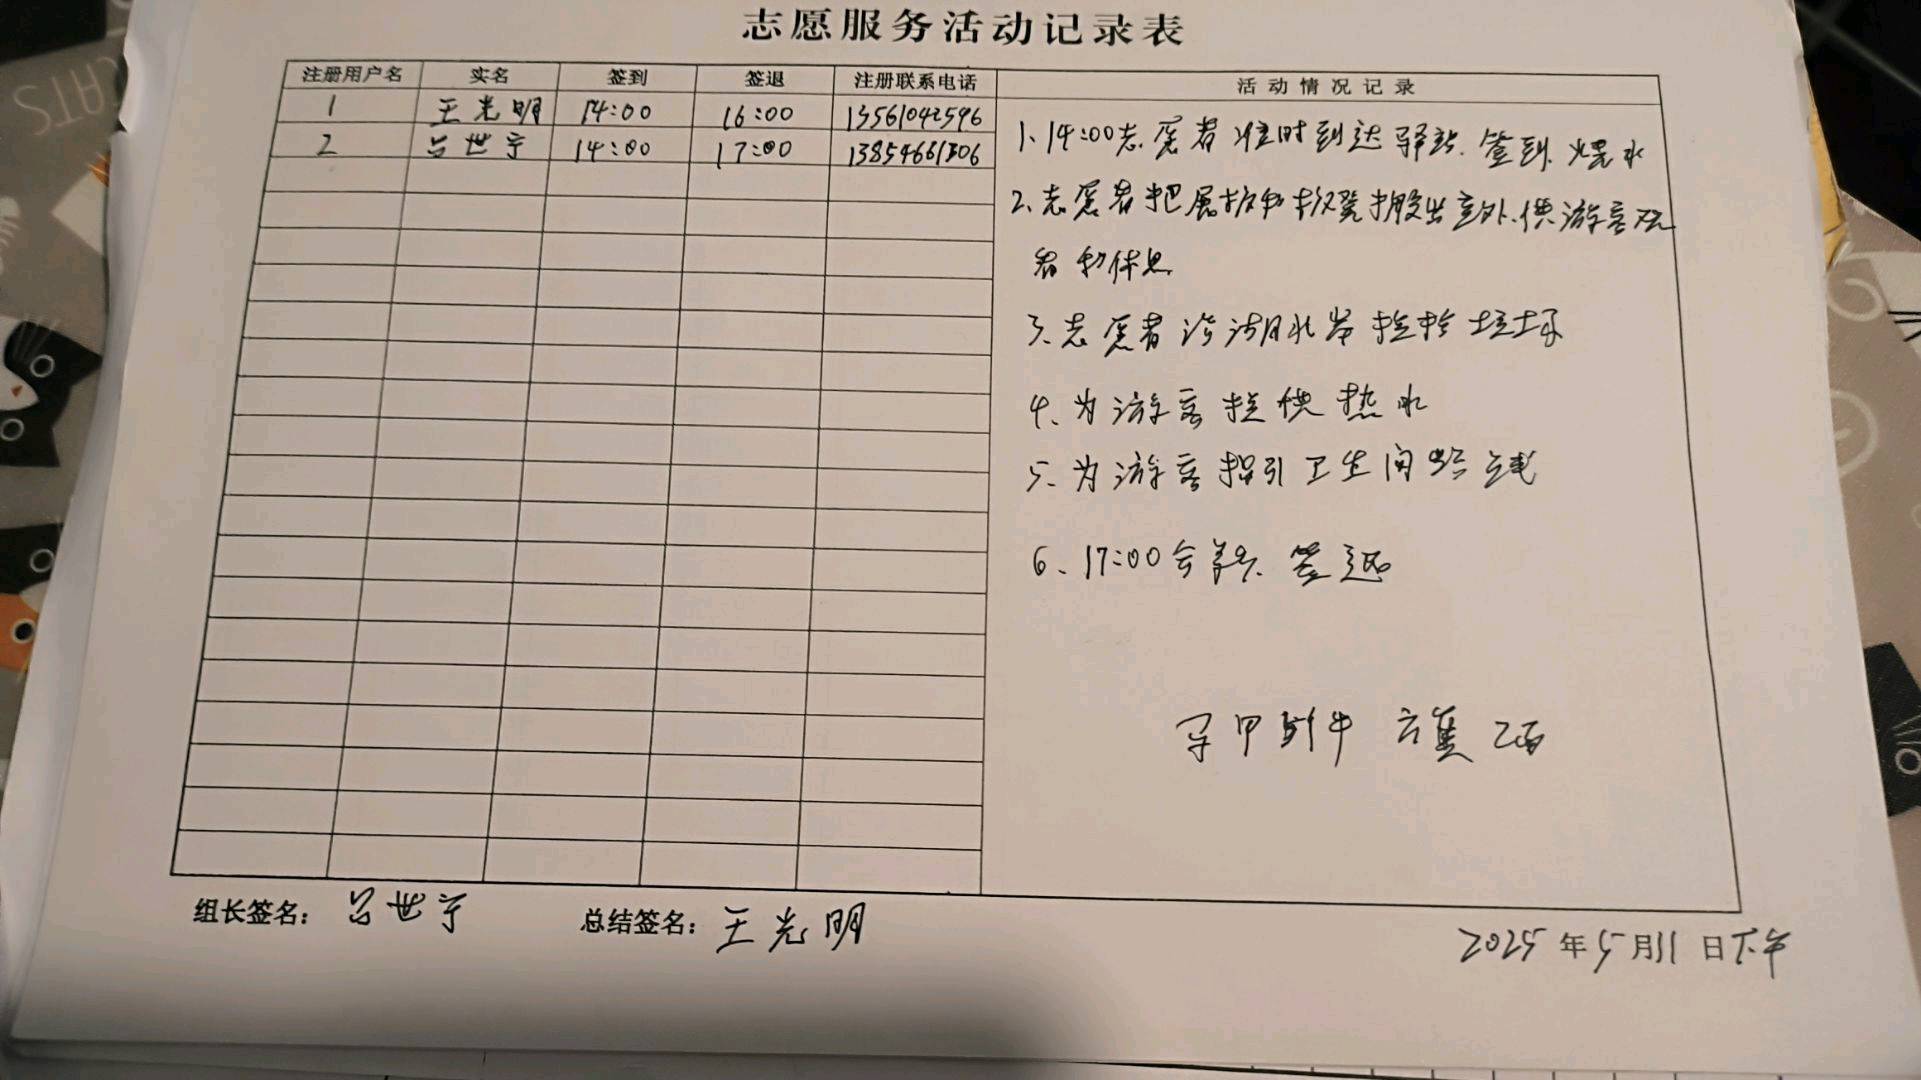 志愿服务活动记录表
注册用户名 实名 签到 签退 注册联系电话 活动情况记录
1 王光明 14:00 16:00 13561042596
2 吕世宁 14:00 17:00 13854661306
1、14:00志愿者准时到达驿站.签到.烧水
2、志愿者把展板和板凳搬出室外.供游客观
看和休息
3、志愿者沿湖水岸捡拾垃圾
4、为游客提供热水
5、为游客指引卫生间路线
6、17:00 签退
组长签名： 吕世宁 总结签名： 王光明
2025年5月11日下午
CATS